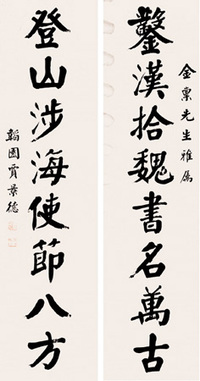 金粟先生雅属
鑿漢拾魏書名萬古
登山涉海使節八方
韜園賈景德